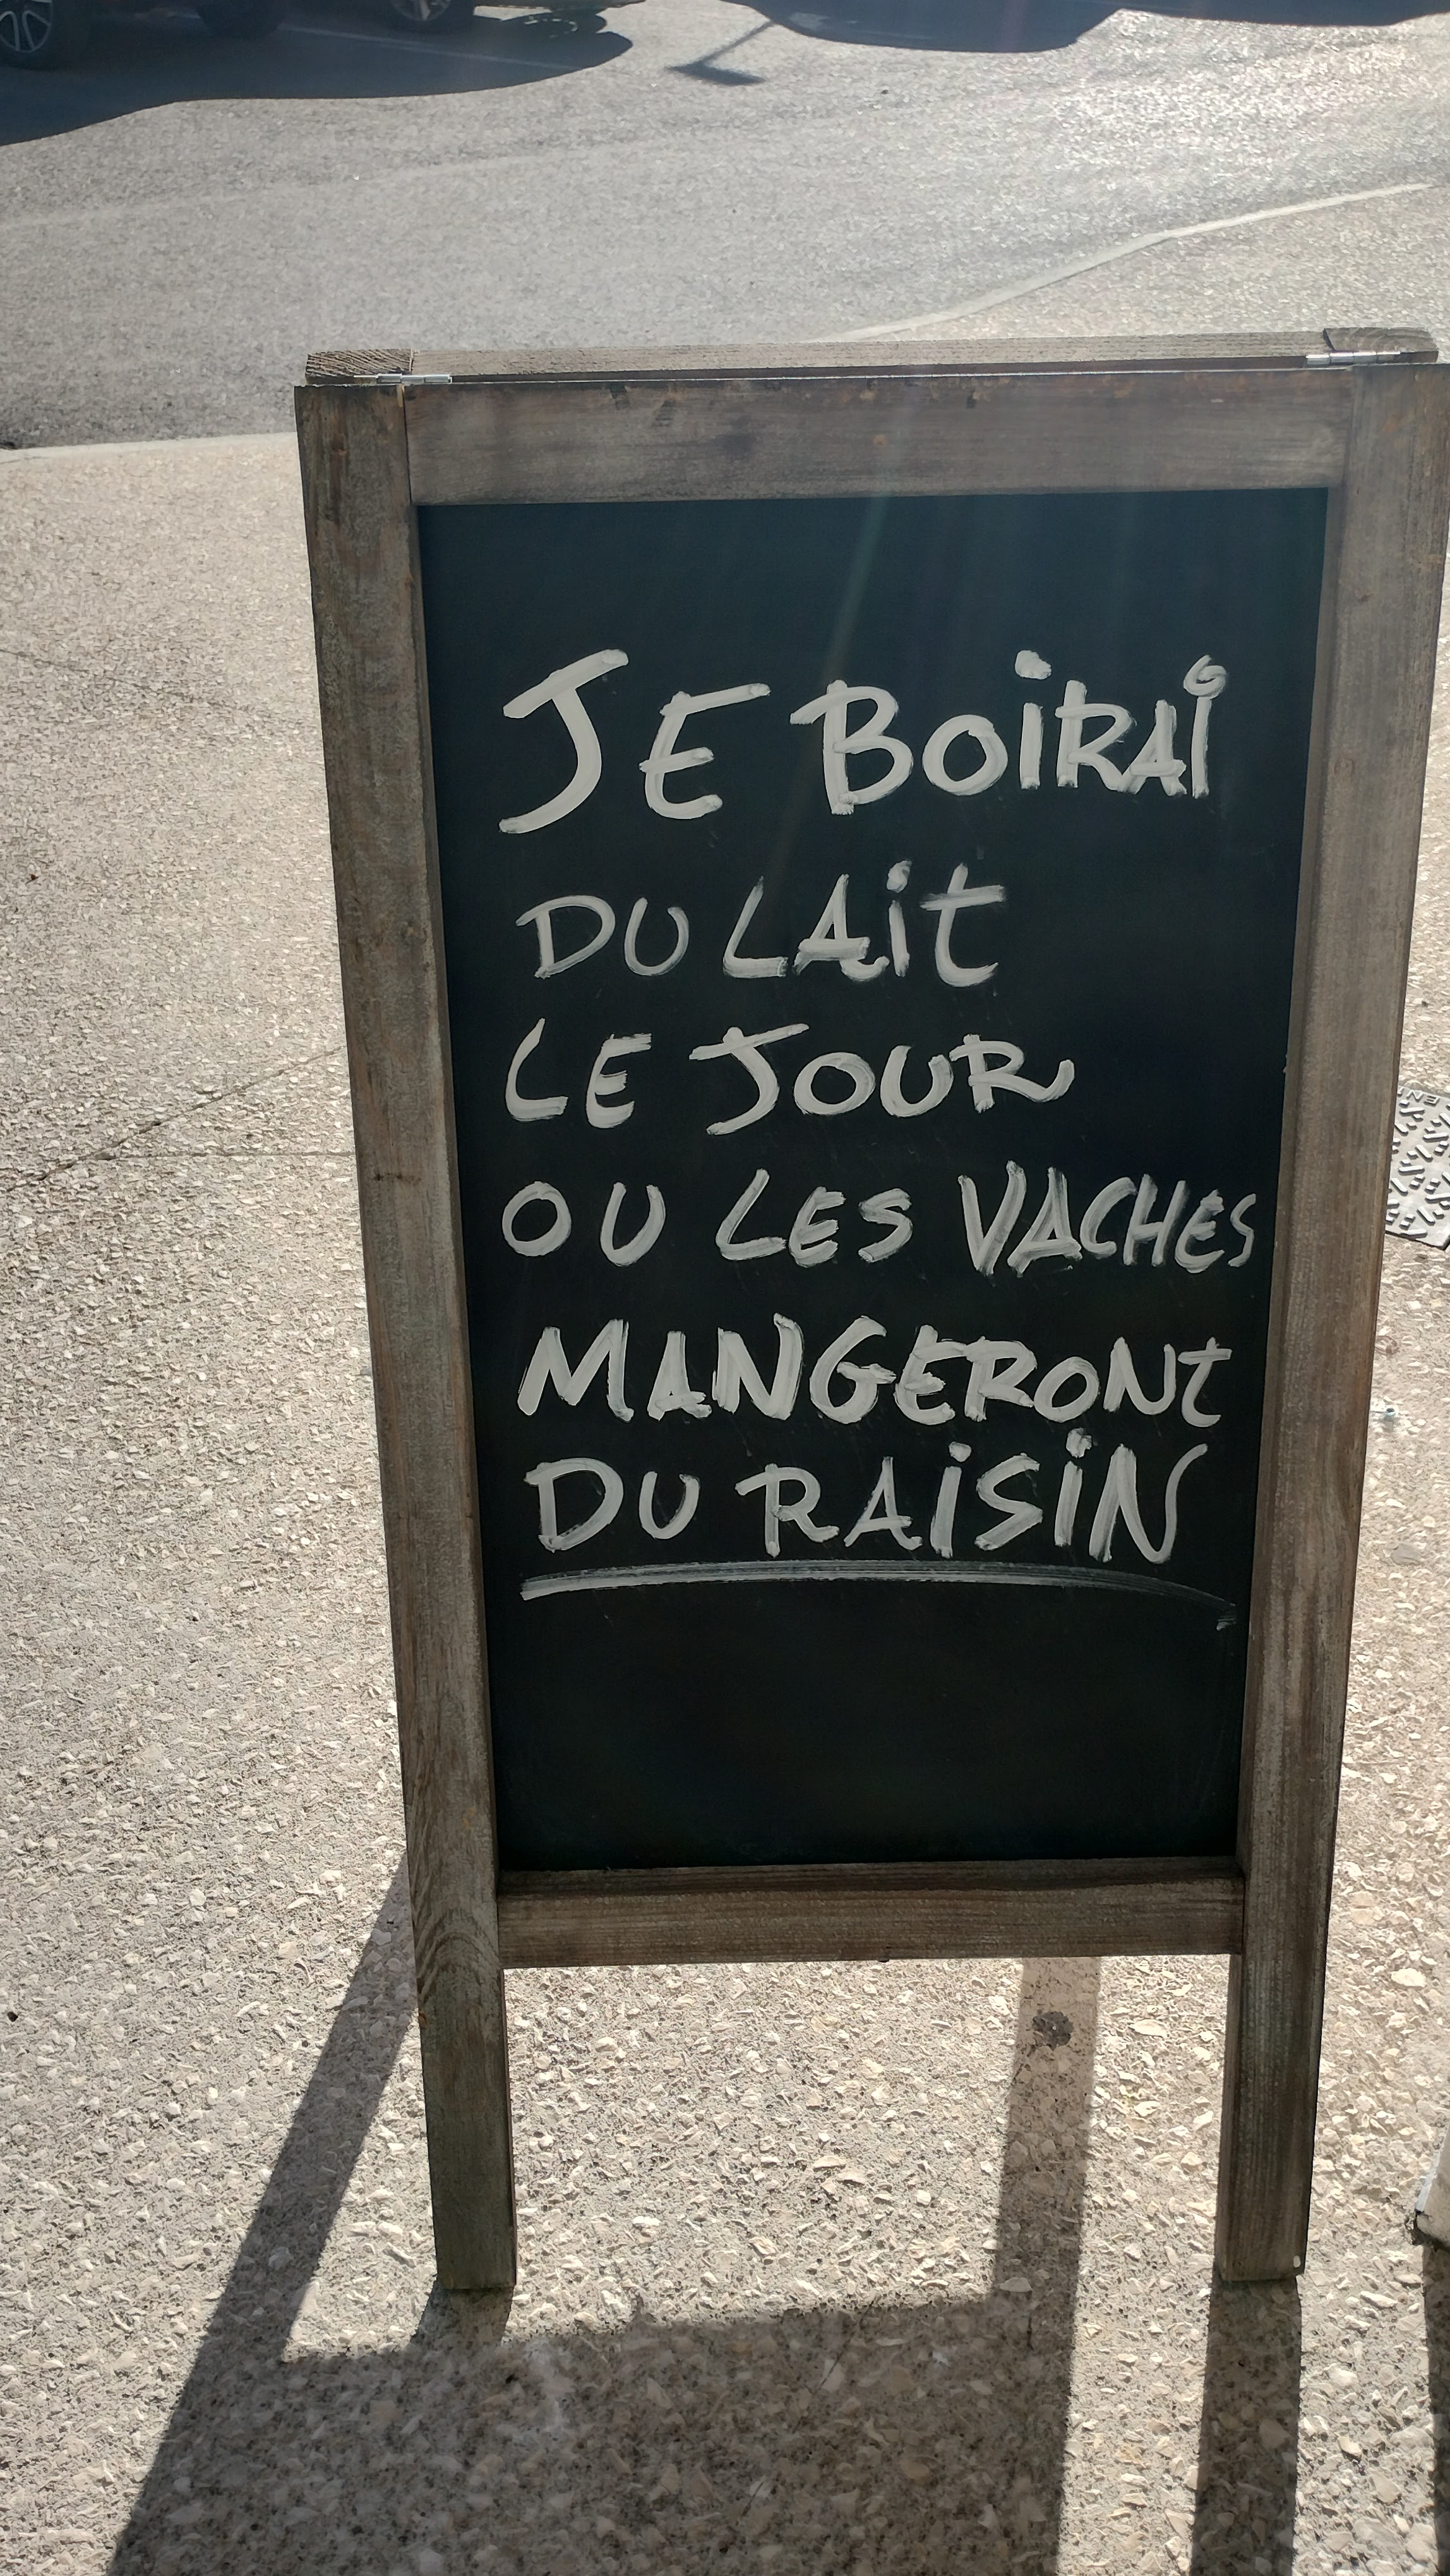 JE BOIRAI
DU LAIT
LE JOUR
OU LES VACHES
MANGERONT
DU RAISIN